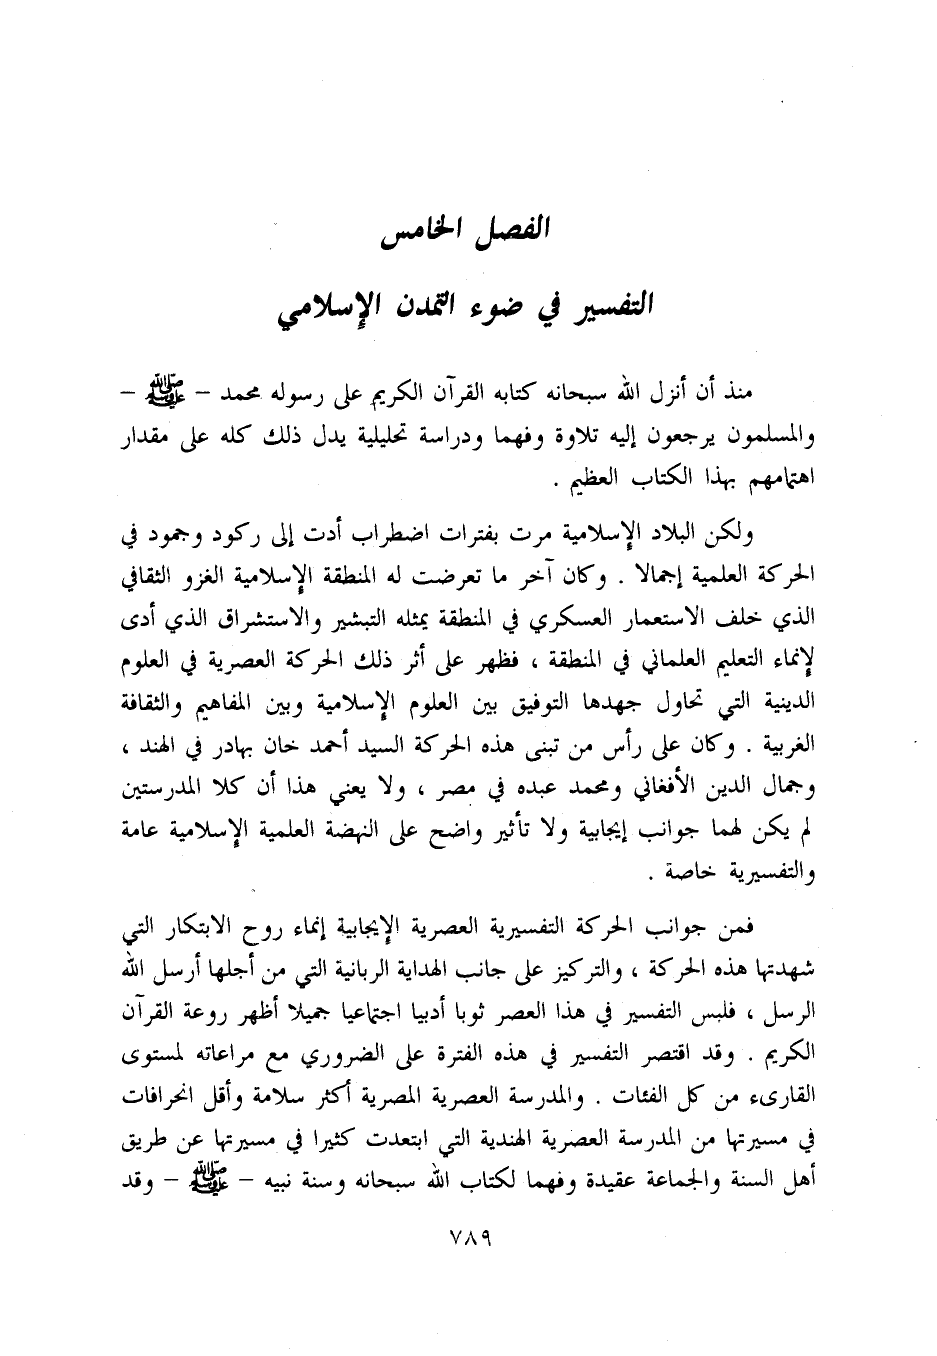 الفصل الخامس
التفسير في ضوء التمدن الإسلامي
منذ أن أنزل الله سبحانه كتابه القرآن الكريم على رسوله محمد – ﷺ –
والمسلمون يرجعون إليه تلاوة وفهما ودراسة تحليلية يدل ذلك كله على مقدار
اهتمامهم بهذا الكتاب العظيم .
ولكن البلاد الإسلامية مرت بفترات اضطراب أدت إلى ركود وجمود في
الحركة العلمية إجمالا . وكان آخر ما تعرضت له المنطقة الإسلامية الغزو الثقافي
الذي خلف الاستعمار العسكري في المنطقة يمثله التبشير والاستشراق الذي أدى
لإنماء التعليم العلماني في المنطقة ، فظهر على أثر ذلك الحركة العصرية في العلوم
الدينية التي تحاول جهدها التوفيق بين العلوم الإسلامية وبين المفاهيم والثقافة
الغربية . وكان على رأس من تبنى هذه الحركة السيد أحمد خان بهادر في الهند ،
وجمال الدين الأفغاني ومحمد عبده في مصر ، ولا يعني هذا أن كلا المدرستين
لم يكن لهما جوانب إيجابية ولا تأثير واضح على النهضة العلمية الإسلامية عامة
والتفسيرية خاصة .
فمن جوانب الحركة التفسيرية العصرية الإيجابية إنماء روح الابتكار التي
شهدتها هذه الحركة ، والتركيز على جانب الهداية الربانية التي من أجلها أرسل الله
الرسل ، فلبس التفسير في هذا العصر ثوبا أدبيا اجتماعيا جميلا أظهر روعة القرآن
الكريم . وقد اقتصر التفسير في هذه الفترة على الضروري مع مراعاته لمستوى
القارىء من كل الفئات . والمدرسة العصرية المصرية أكثر سلامة وأقل انحرافات
في مسيرتها من المدرسة العصرية الهندية التي ابتعدت كثيرا في مسيرتها عن طريق
أهل السنة والجماعة عقيدة وفهما لكتاب الله سبحانه وسنة نبيه – ﷺ – وقد
٧٨٩